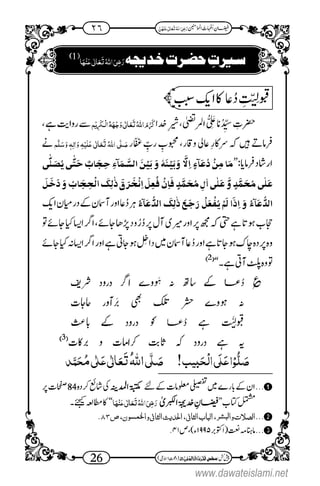 ٢٦
سیرتِ حضرت خدیجہ رَضِیَ اللہُ تَعَالٰی عَنْہَا (1)
قبولیَّتِ دُعا کا ایک سبب
حضرتِ سیِّدُنا علیُّ المرتضٰی، شیرِ خدا کَرَّمَ اللہُ تَعَالٰی وَجْہَہُ الْکَرِیْم سے روایت ہے،
فرماتے ہیں کہ سرکارِ عالی وقار، محبوبِ ربِّ غفَّار صَلَّی اللہُ تَعَالٰی عَلَیْہِ وَاٰلِہٖ وَسَلَّم نے
ارشاد فرمایا: ”مَا مِنْ دُعَآءٍ اِلَّا وَبَیْنَہٗ وَ بَیْنَ السَّمَآءِ حِجَابٌ حَتّٰی یُصَلّٰی
عَلٰی مُحَمَّدٍ وَّ عَلٰی اٰلِ مُحَمَّدٍ فَاِذَا فُعِلَ اِنْخَرَقَ ذٰلِكَ الْحِجَابُ وَ دَخَلَ
الدُّعَآءُ وَ اِذَا لَمْ یُفْعَلْ رَجَعَ ذٰلِكَ الدُّعَآءُ ہر دُعا اور آسمان کے درمیان ایک
حجاب ہوتا ہے حتی کہ مجھ پر اور میری آل پر دُرُود پڑھا جائے، اگر ایسا کیا جائے تو
وہ پردہ چاک ہو جاتا ہے اور دُعا آسمان میں داخل ہو جاتی ہے اور اگر ایسا نہ کیا جائے
تو وہ پلٹ آتی ہے۔“ (2)
دُعا کے ساتھ نہ ہووے اگر درود شریف
نہ ہووے حشر تلک بھی برآورِ حاجات
قبولیَّت ہے دُعا کو درود کے باعث
یہ ہے درود کہ ثابت کرامات و برکات (3)
صَلُّوْا عَلَی الْحَبِیْب! صَلَّی اللہُ تَعَالٰی عَلٰی مُحَمَّد
1 … ان کے بارے میں تفصیلی معلومات کے لئے مکتبۃ المدینہ کی شائع کردہ 84 صفحات پر
مشتمل کتاب ”فیضانِ خدیجۃ الکبریٰ رَضِیَ اللہُ تَعَالٰی عَنْہَا“ کا مطالعہ کیجئے۔
2 … الصلات والبشر، الباب الثانی، الحدیث الثانی والخمسون، ص۸۳۔
3 … ماہنامہ نعت (اکتوبر ۱۹۹۵ء)، ص۴۱۔
26
www.dawateislami.net